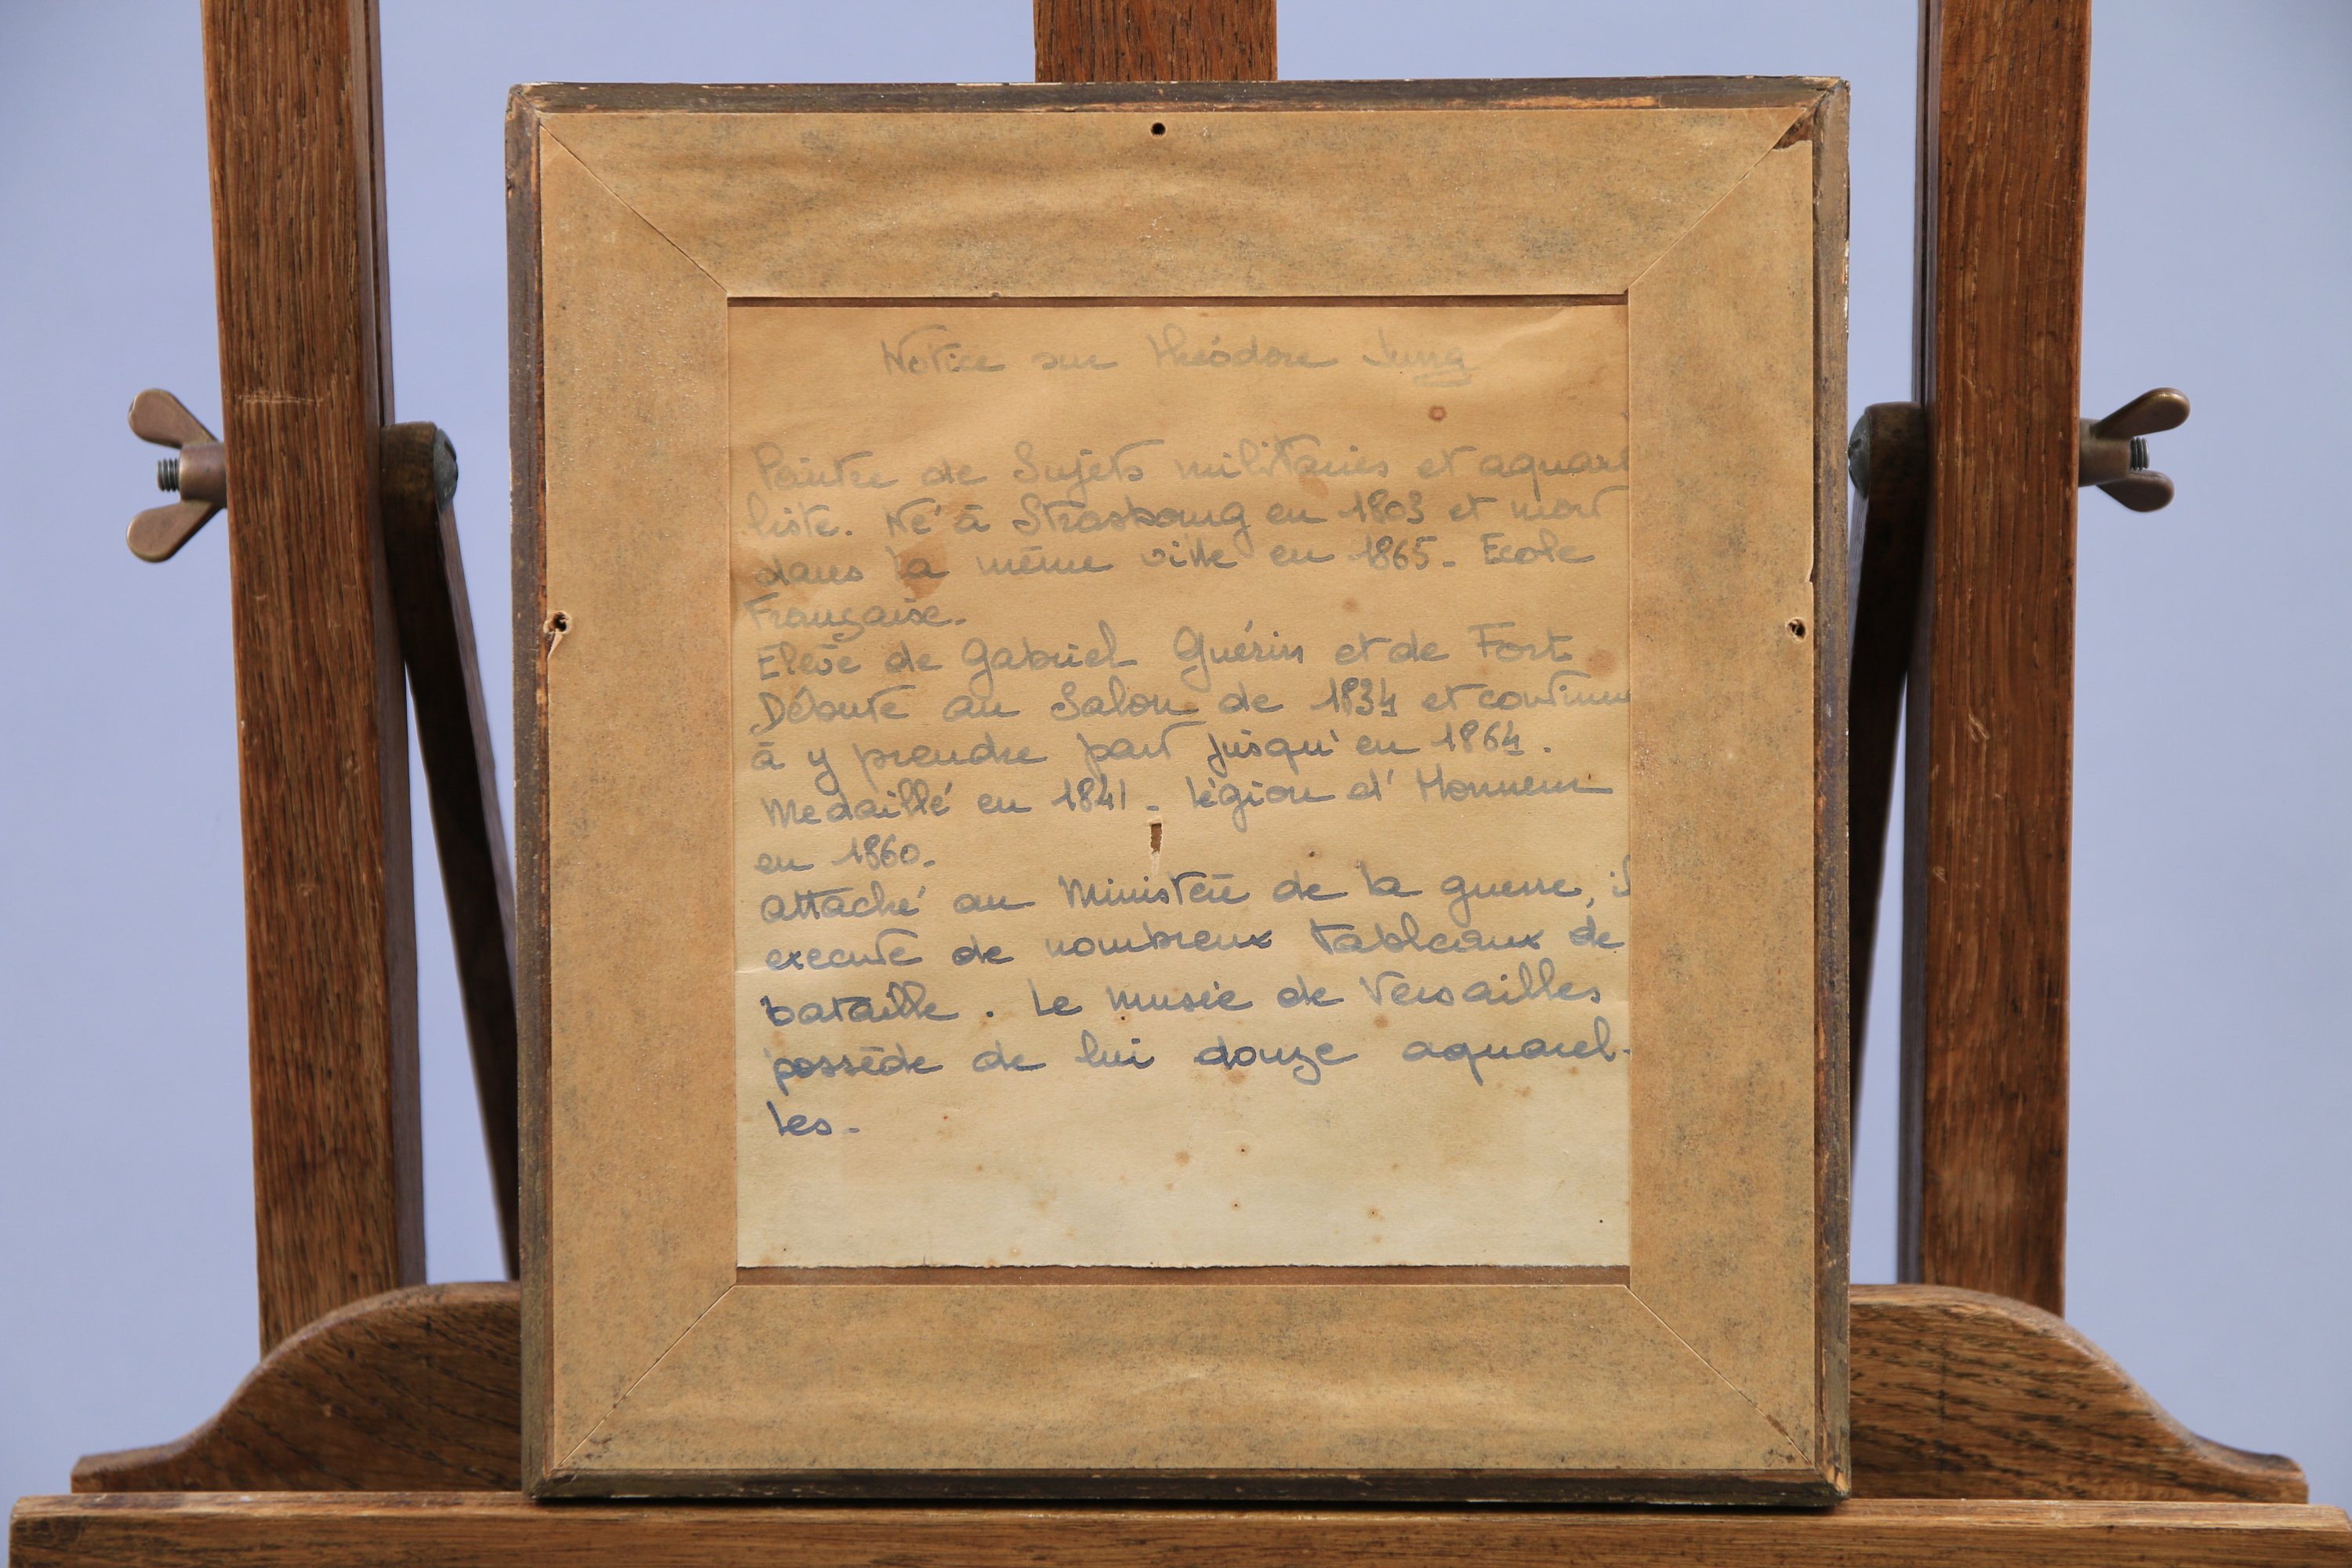 Notice sur théodore Jung
Peintre de Sujets militaires et aquarel
liste. Né à Strasbourg en 1803 et mort
dans la même ville en 1865. Ecole
Française.
Elève de Gabriel Guérin et de Fort
Débute au Salon de 1834 et continue
à y prendre part jusqu'en 1864.
Medaillé en 1841 - Légion d'Honneur
en 1860.
attaché au Ministère de la guerre, il
execute de nombreux tableaux de
bataille. Le musée de Versailles
possède de lui douze aquarel-
les.